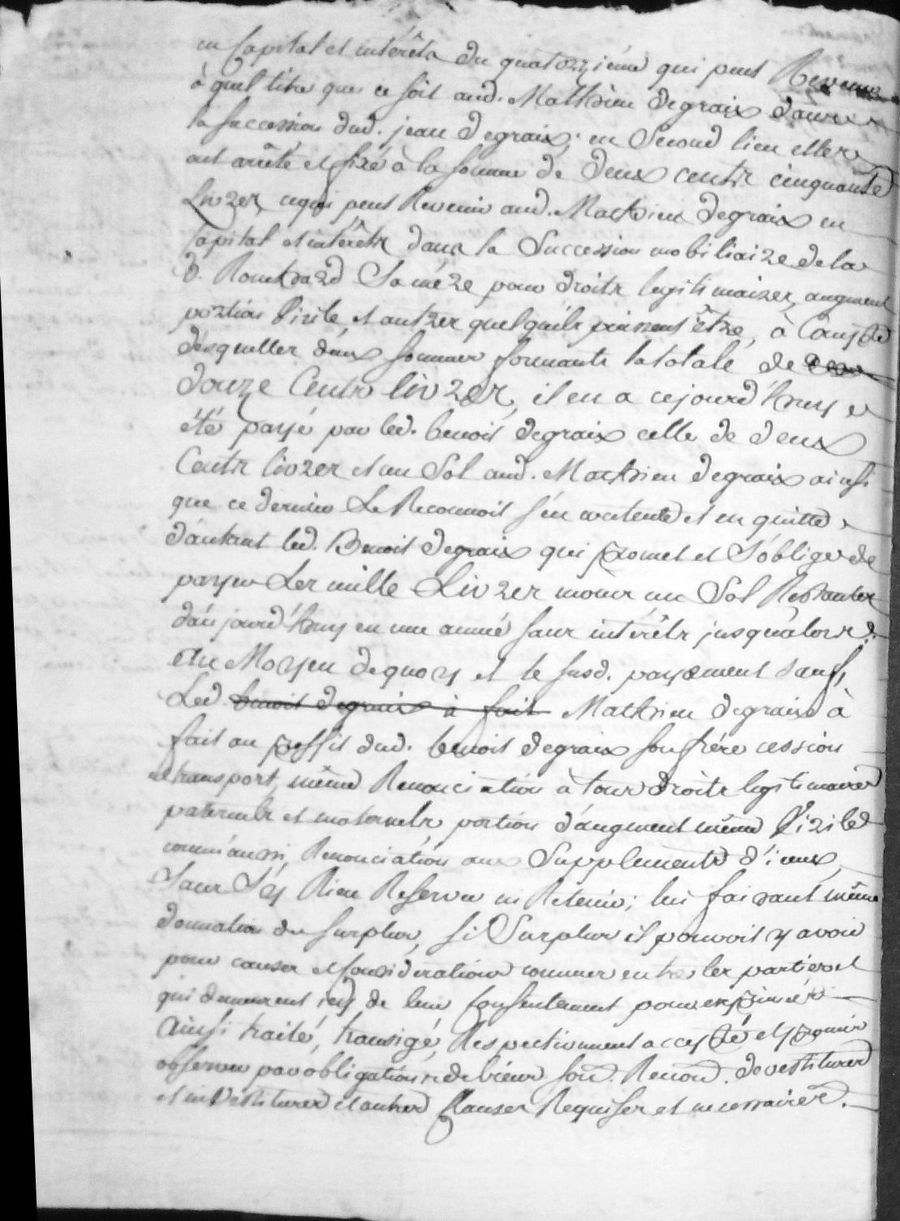 en Capital et intérêts du quatorzième qui peut Revenir
à quel titre que ce soit aud. Mathieu degraix dans
la succession dud. jean degraix; en Second lieu elles
ont arrêté et fixé à la somme de deux cents cinquante
Livres ce qui peut Revenir aud. Mathieu degraix en
Capital et intérêts dans la Succession mobiliaire de la
d. Sa mère pour droits legitimaires, augment
portion Virile et autres quelquils puissent être, à Compte
desquelles deux sommes formants la totale de
douze Cents livres, il en a cejourd'huy
été payé par led. benoit degraix celle de deux
Cents livres et un Sol aud. Mathieu degraix ainsi
que ce dernier Le Reconnoit s'en contente et en quitte
d'autant led. Benoit degraix qui promet et S'oblige de
payer Les mille Livres moins un Sol Restantes
d'aujourd'huy en une année sans intérêts jusqu'alors
Au Moyen dequoy et le susd. payement sauf,
Led. benoit degraix à fait Mathieu degraix à
fait au proffit dud. benoit degraix son frére cession
et transport, même Renonciation à tous droits legitimaires
paternels et maternels portion d'augment même Virile
comm'aussi, Renonciation aux Supplements d'iceux,
Sans S'y Rien Reserver ni Retenir; lui faisant même
donnation du surplus, si Surplus il pouvoit y avoir
pour causes et Considerations connues entre les parties et
qui demeurent icy de leur Consentement pour exprimées
Ainsi traité, transigé, Respectivement accepté et promis
observer par obligations de biens Soum. Renon. devestitures
et investitures et autres Clauses Requises et necessaires.